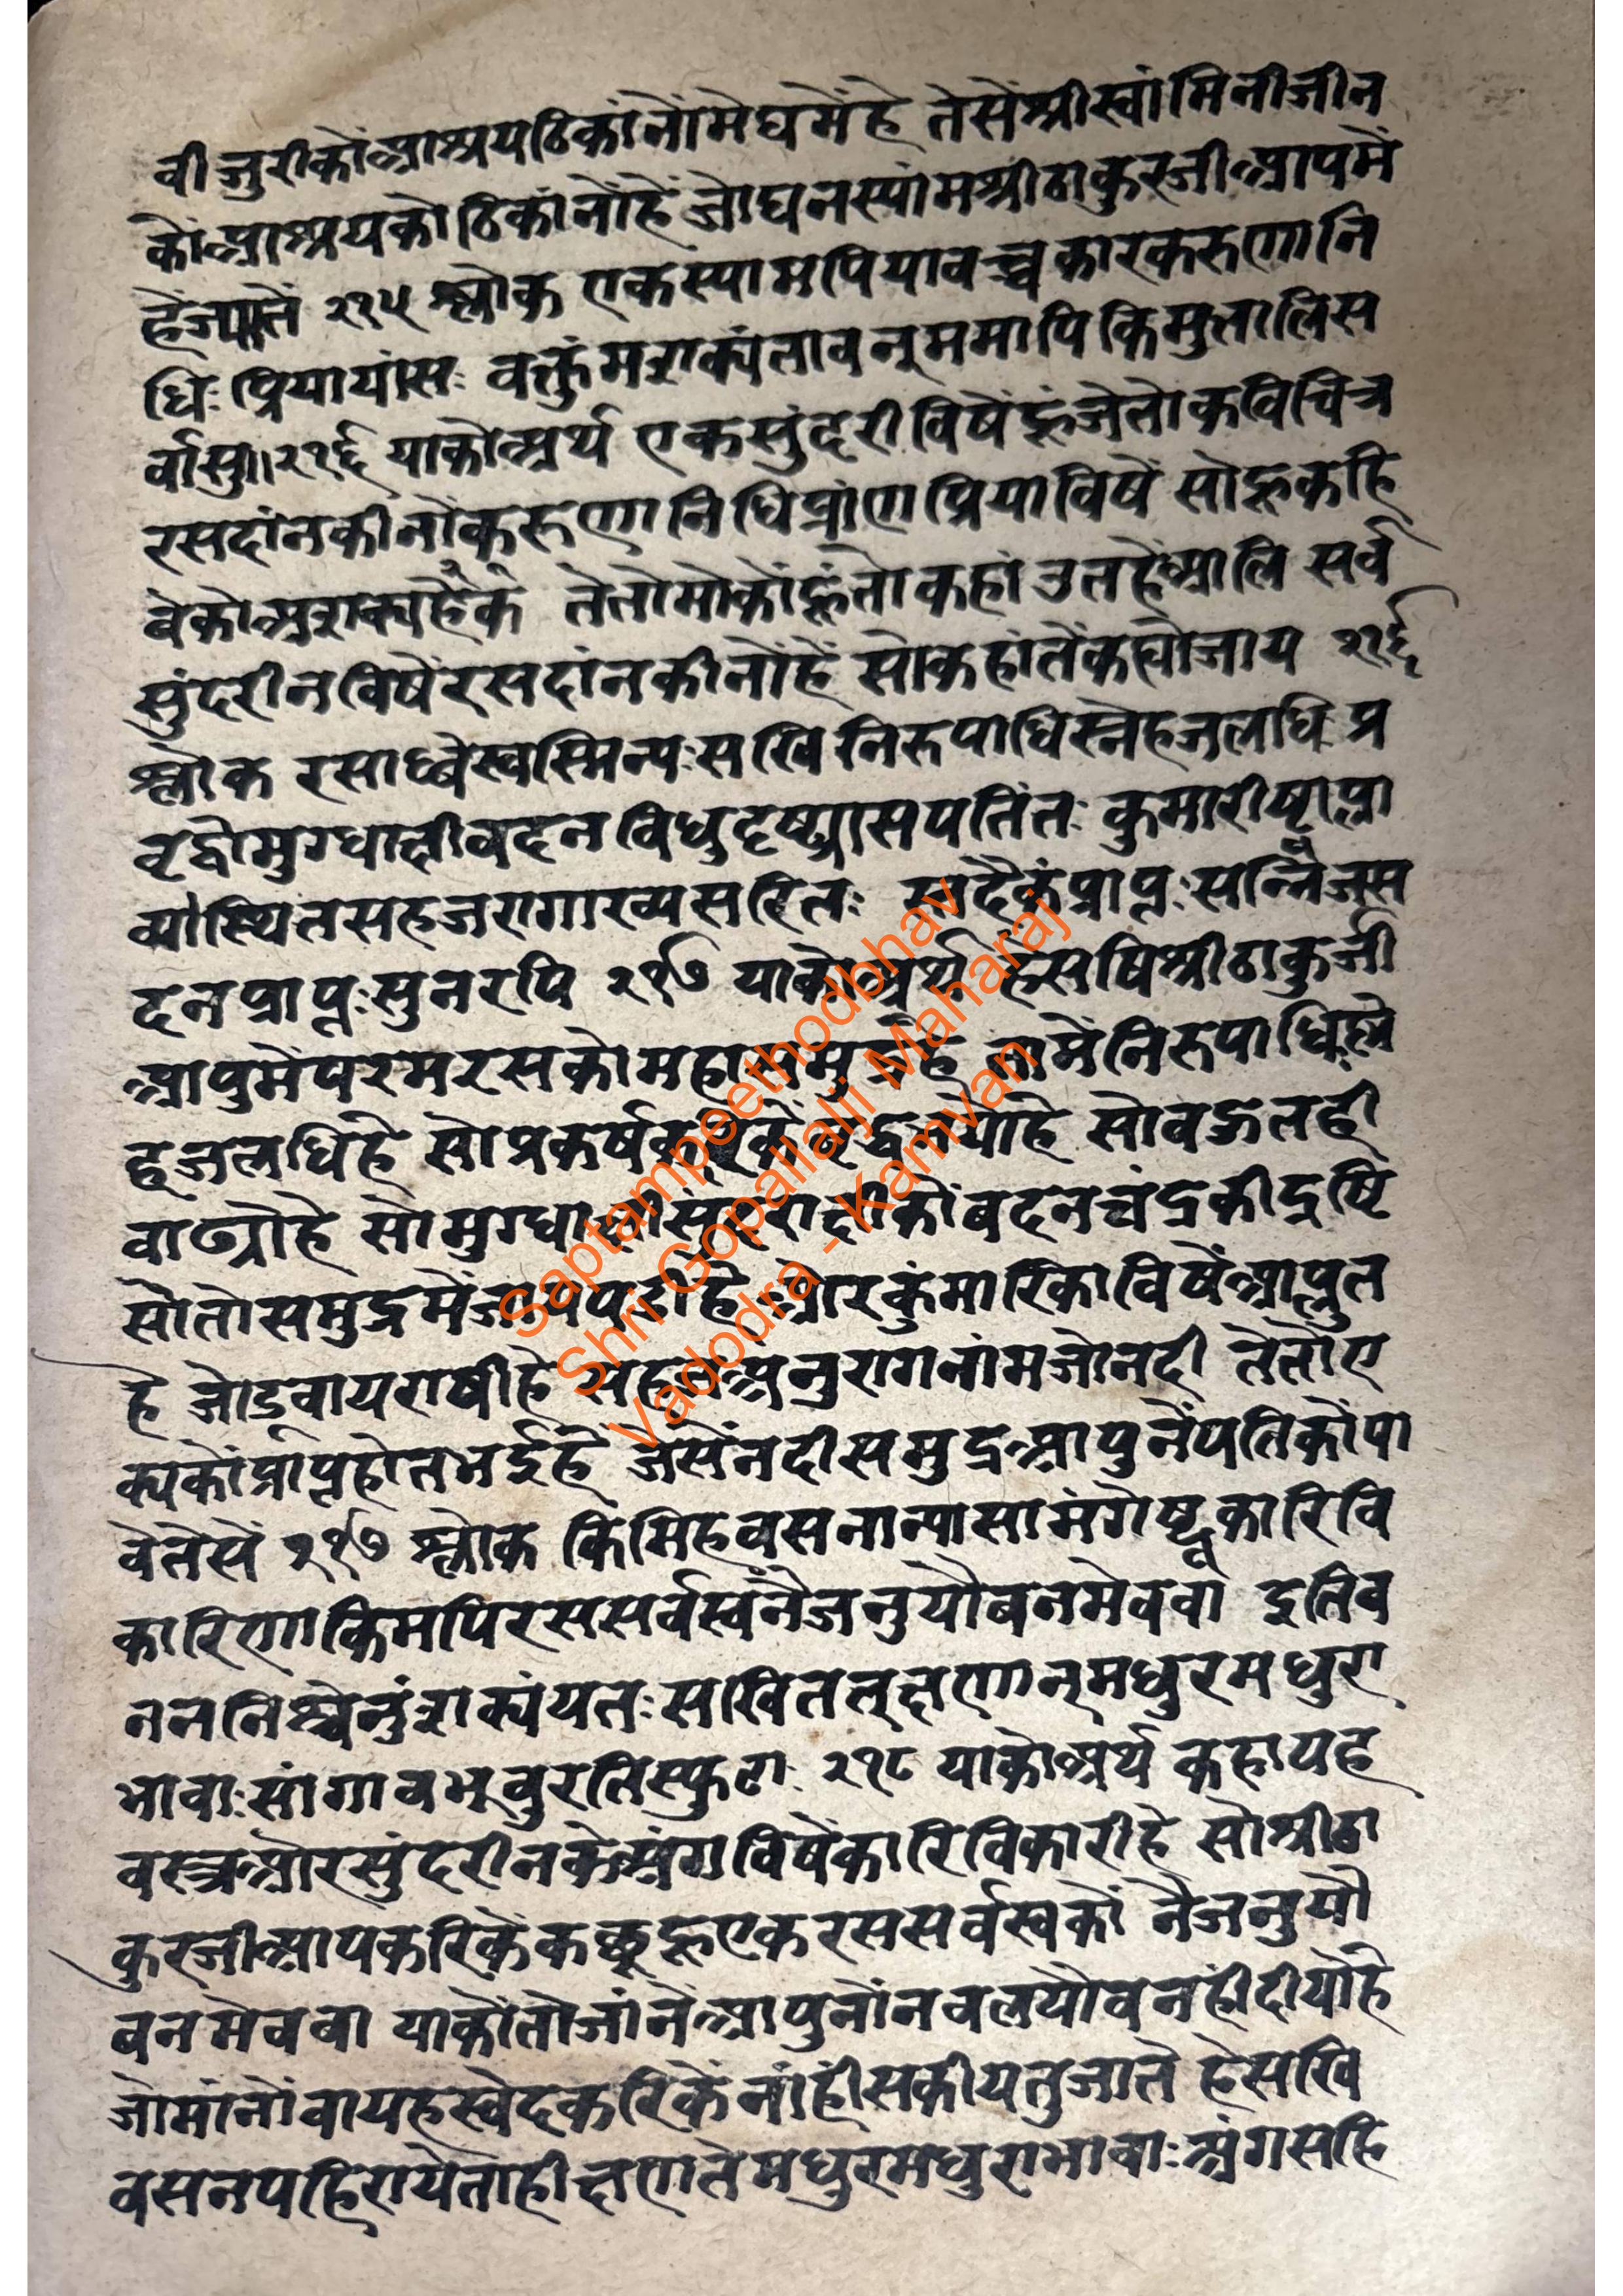 वीजुरीकोंआश्रयठिकांनोंमेघमेंहे तेसेंश्रीस्वांमिनीजीन
कोंआश्रयकोठिकांनोंहें जोघनस्यांमश्रीठाकुरजीआपमें
हेंज्यातें २१५ श्लोक एकस्यामपियावच्चकारकरुणानि
धिः प्रियायांसः वक्तुंमशक्यंतावन्ममापिकिमुतालिस
र्वासु॥२१६ याकोअर्थ एकसुंदरीविषेंह्रंजेतोकविचित्र
रसदांनकीनोंकरुणानिधिप्रांणप्रियाविषें सोह्रकहि
वेकोअशक्यहेंकें तेतोमोकोंह्रंतोकहांउतहेंआलि सर्व
सुंदरीनविषेंरसदांनकीनोंहें सोकहांतेंकह्योजाय २१६
श्लोक रसाब्धेस्वस्मिन्यःसखिनिरुपाधिस्नेहजलधि प्र
वृद्धोमुग्धाक्षीवदनविधुदृष्ट्यासपतितः कुमारीष्वाप्ला
व्योस्थितसहजरागाख्यसरितः सदैक्यंप्राप्तःसन्निजस
दनप्राप्तःसुनरपि २१७ याकोअर्थ हेसषिश्रीठाकुर्जी
आपुमेंपरमरसकोमहासमुद्रहे तामेंनिरुपाधिस्ने
हजलधिहे सोप्रकर्षकरिकेंवृद्धभयोहे सोवऊलही
वाढ्योहे सोमुग्धाक्षीसुंदराक्षीकोंवदनचंद्रकीद्रष्टि
सोतोसमुद्रमेंजायपडीहे ओरकुंमारिकाविषेंआप्लुत
हे जोडवायराषीहे सहजअनुरागनांमजोनदी तेतोए
क्यकोंप्राप्तहोतभईहे जेसेंनदीसमुद्रआपुनेंपतिकोंपा
वेतेसें २१७ श्लोक किमिहवसनान्यासामंगेष्वकारिवि
कारिणाकिमपिरससर्वस्वंनैजनुयौबनमेववा इतिव
तननिश्चेतुंशक्यंयतःसखितत्क्षणान्मधुरमधुरा
भावाःसांगावभूवुरतिस्फुटाः २१८ याकोअर्थ कहायह
वस्त्रओरसुंदरीनकेअंगविषेंकारिविकारीहे सोश्रीठा
कुरजीआपकरिकेंकछूह्रएकरससर्वस्वकों नैजनुयौ
बनमेववा याकोंतोजांनेंआपुनोंनवलयौवनहींदीयोहे
जोमांनोंवायहस्वेदकरिकेंनांहींसकीयतुजाते हेसखि
वसनपहिरायेताहीक्षणतेमधुरमधुराभावाः अंगसहि
Saptampeethodbhav
Shri Gopallalji Maharaj
Vadodra - Kamvan